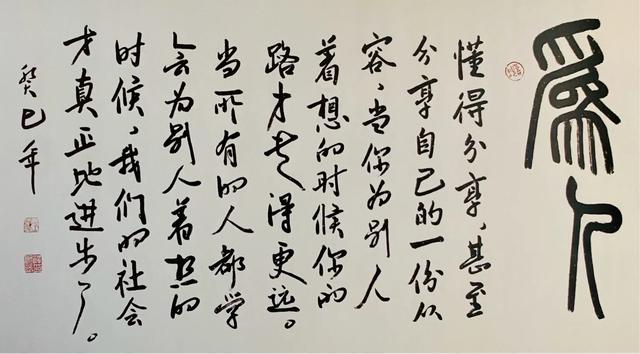 爲人
懂得分享，甚至
分享自己的一份从
容，当你为别人
着想的时候你的
路才走得更远。
当所有的人都学
会为别人着想的
时候，我们的社会
才真正地进步了。
癸巳年